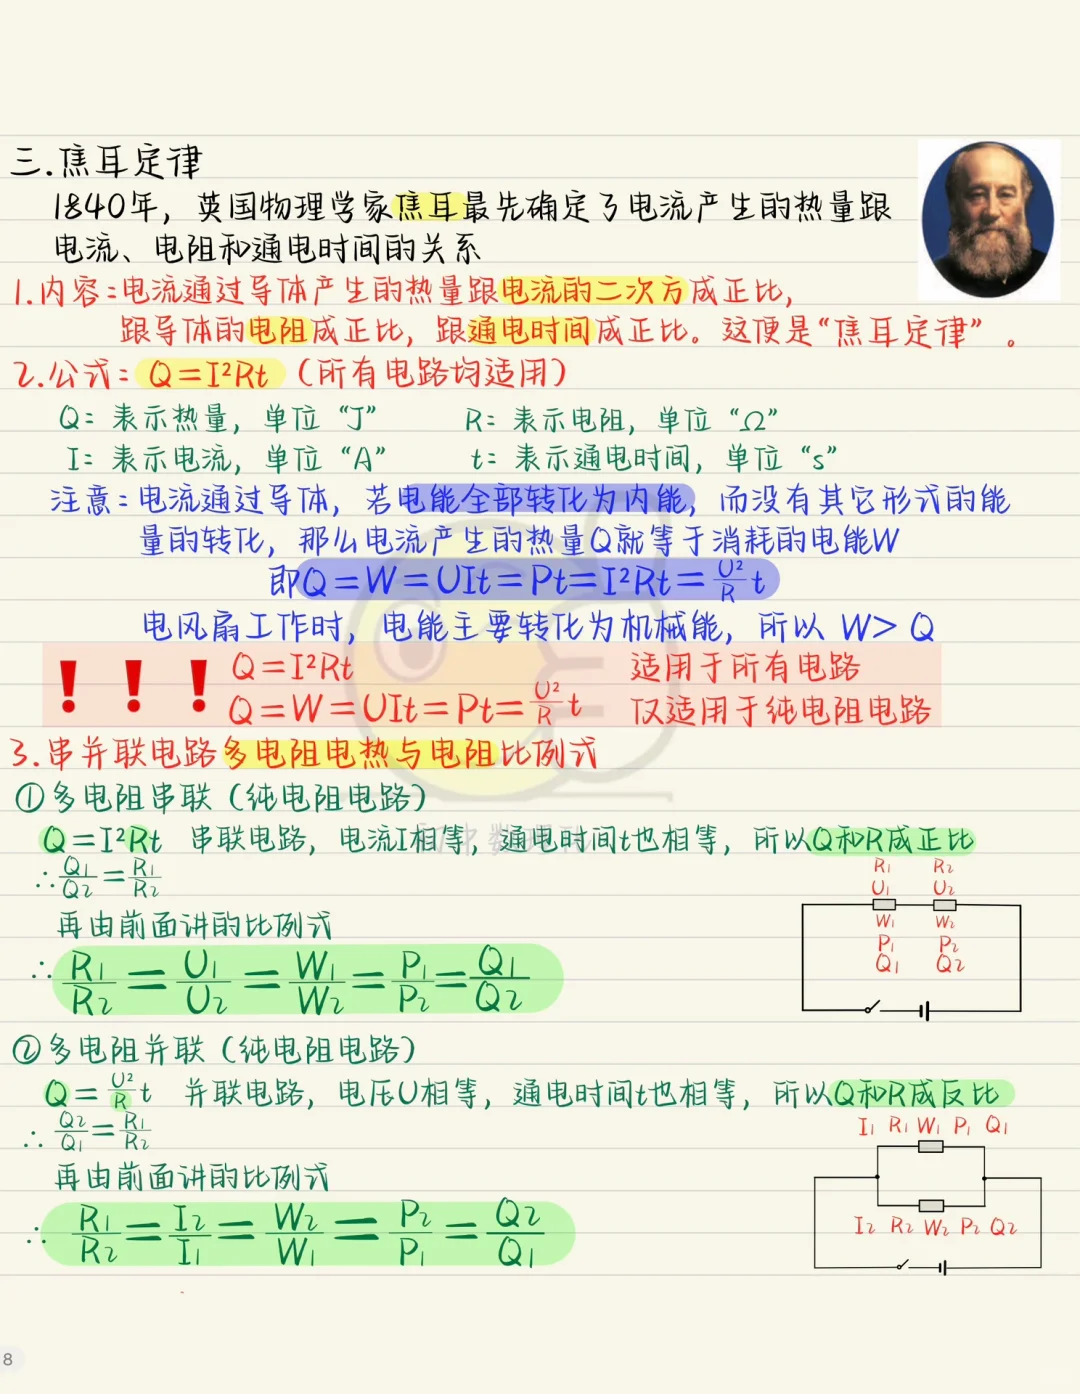 三.焦耳定律
1840年，英国物理学家焦耳最先确定了电流产生的热量跟
电流、电阻和通电时间的关系
1.内容：电流通过导体产生的热量跟电流的二次方成正比，
跟导体的电阻成正比，跟通电时间成正比。这便是“焦耳定律”。
2.公式：Q=I²Rt（所有电路均适用）
Q：表示热量，单位“J” R：表示电阻，单位“Ω”
I：表示电流，单位“A” t：表示通电时间，单位“s”
注意：电流通过导体，若电能全部转化为内能，而没有其它形式的能
量的转化，那么电流产生的热量Q就等于消耗的电能W
即Q=W=UIt=Pt=I²Rt=U²/R t
电风扇工作时，电能主要转化为机械能，所以 W>Q
❗❗❗ Q=I²Rt 适用于所有电路
Q=W=UIt=Pt=U²/R t 仅适用于纯电阻电路
3.串并联电路多电阻电热与电阻比例式
①多电阻串联（纯电阻电路）
Q=I²Rt 串联电路，电流I相等，通电时间t也相等，所以Q和R成正比
∴Q₁/Q₂=R₁/R₂
R₁ R₂
U₁ U₂
W₁ W₂
P₁ P₂
Q₁ Q₂
再由前面讲的比例式
∴R₁/R₂=U₁/U₂=W₁/W₂=P₁/P₂=Q₁/Q₂
②多电阻并联（纯电阻电路）
Q=U²/R t 并联电路，电压U相等，通电时间t也相等，所以Q和R成反比
∴Q₂/Q₁=R₁/R₂
I₁ R₁ W₁ P₁ Q₁
I₂ R₂ W₂ P₂ Q₂
再由前面讲的比例式
∴R₁/R₂=I₂/I₁=W₂/W₁=P₂/P₁=Q₂/Q₁
8